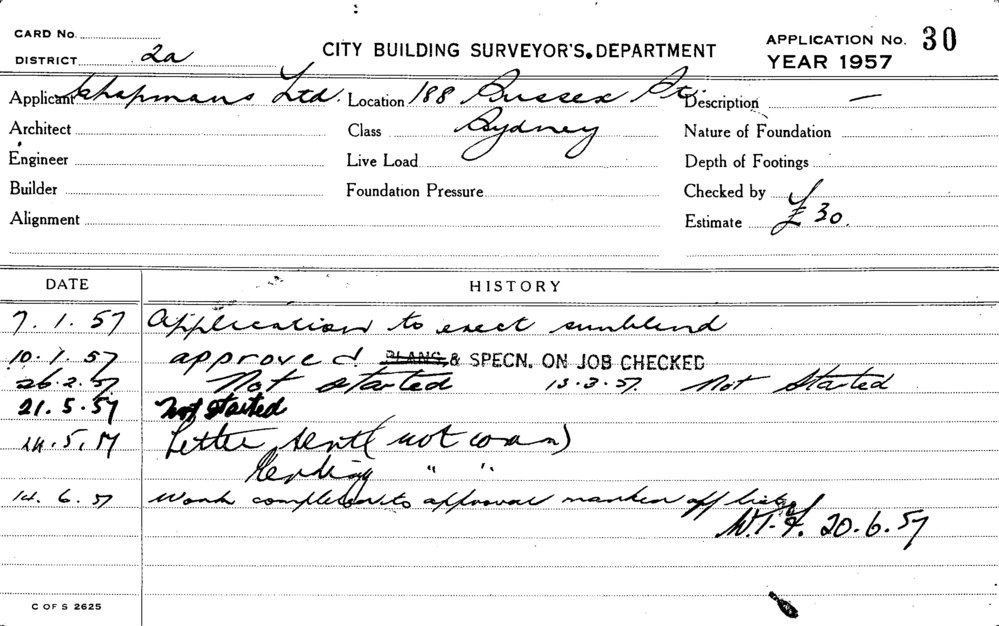 CARD No.
DISTRICT 2a
CITY BUILDING SURVEYOR'S DEPARTMENT
APPLICATION No. 30
YEAR 1957
Applicant Chapmans Ltd. Location 188 Sussex St. Description —
Architect Class Sydney Nature of Foundation
Engineer Live Load Depth of Footings
Builder Foundation Pressure Checked by
Alignment Estimate £30.
DATE HISTORY
7.1.57 Application to erect sunblind
10.1.57 approved PLANS & SPECN. ON JOB CHECKED
26.2.57 Not started 13.3.57. Not Started
21.5.57 Not started
24.5.57 Letter sent (not
" "
14.6.57 Work completed to approval marked off list
W.T. 20.6.57
C OF S 2625